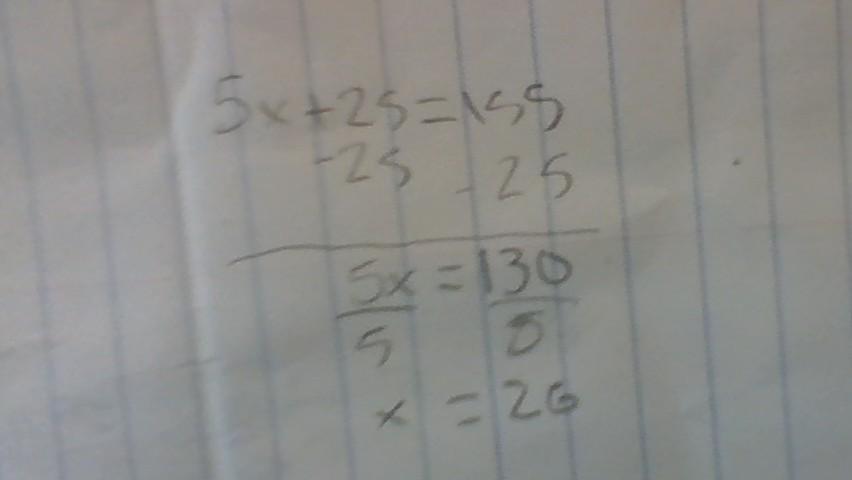 5x+25=155
-25 -25
5x=130
5 5
x=26